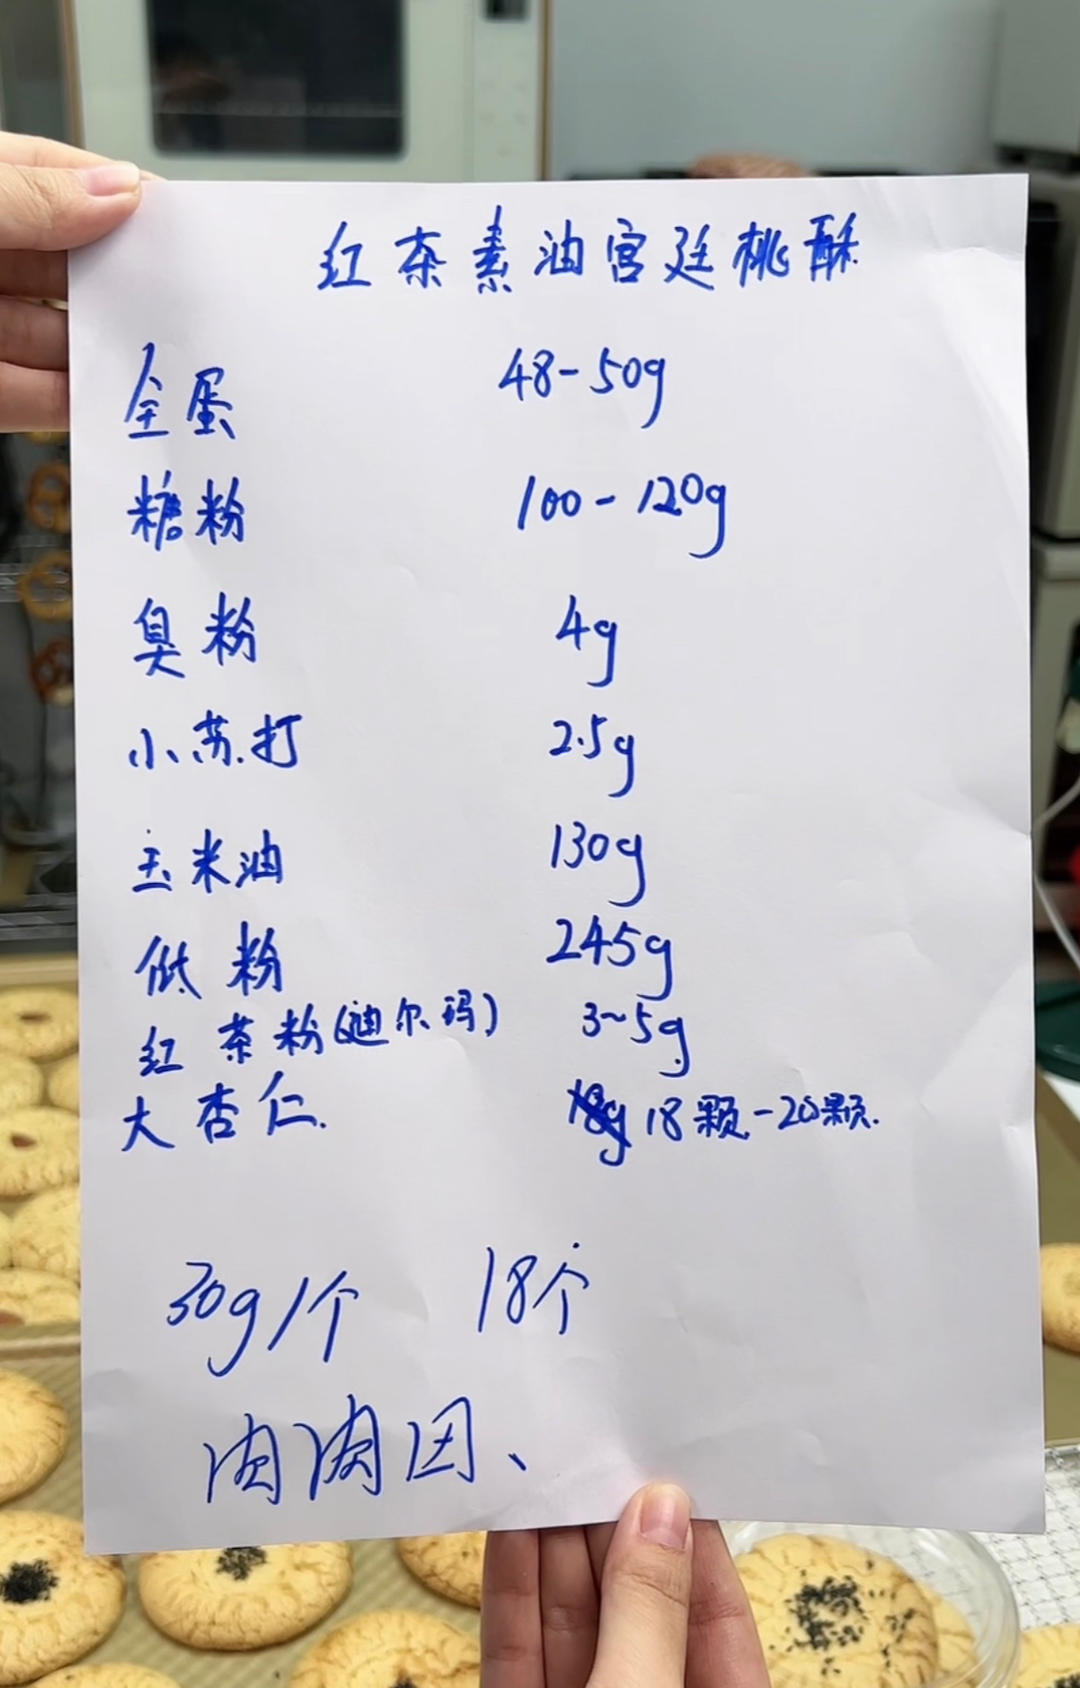 红茶素油宫廷桃酥
全蛋 48-50g
糖粉 100-120g
臭粉 4g
小苏打 2.5g
玉米油 130g
低粉 245g
红茶粉(迪尔玛) 3~5g
大杏仁. 18颗-20颗.
30g/个 18个
肉肉团、